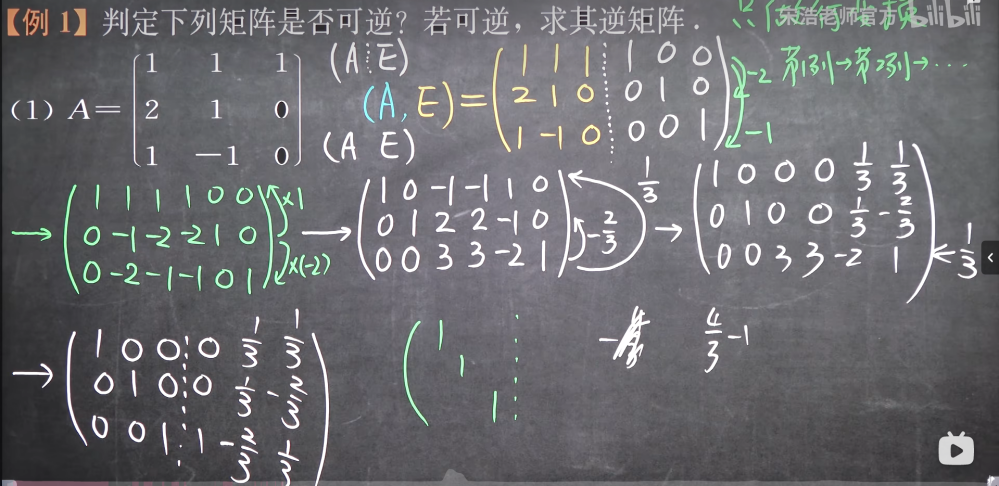 【例 1】判定下列矩阵是否可逆？若可逆，求其逆矩阵．
bilibili
(1) A=
1 1 1
2 1 0
1 -1 0
(A⋮E)
(A, E)=
1 1 1 ⋮ 1 0 0
2 1 0 ⋮ 0 1 0
1 -1 0 ⋮ 0 0 1
-2
-1
第1列→第2列→…
(A E)
→
1 1 1 1 0 0
0 -1 -2 -2 1 0
0 -2 -1 -1 0 1
×1
×(-2)
→
1 0 -1 -1 1 0
0 1 2 2 -1 0
0 0 3 3 -2 1
-2/3
1/3
→
1 0 0 0 1/3 1/3
0 1 0 0 1/3 -2/3
0 0 3 3 -2 1
1/3
→
1 0 0 ⋮ 0 1/3 1/3
0 1 0 ⋮ 0 1/3 -2/3
0 0 1 ⋮ 1 -2/3 1/3
1 ⋮
1 ⋮
1 ⋮
4/3 -1